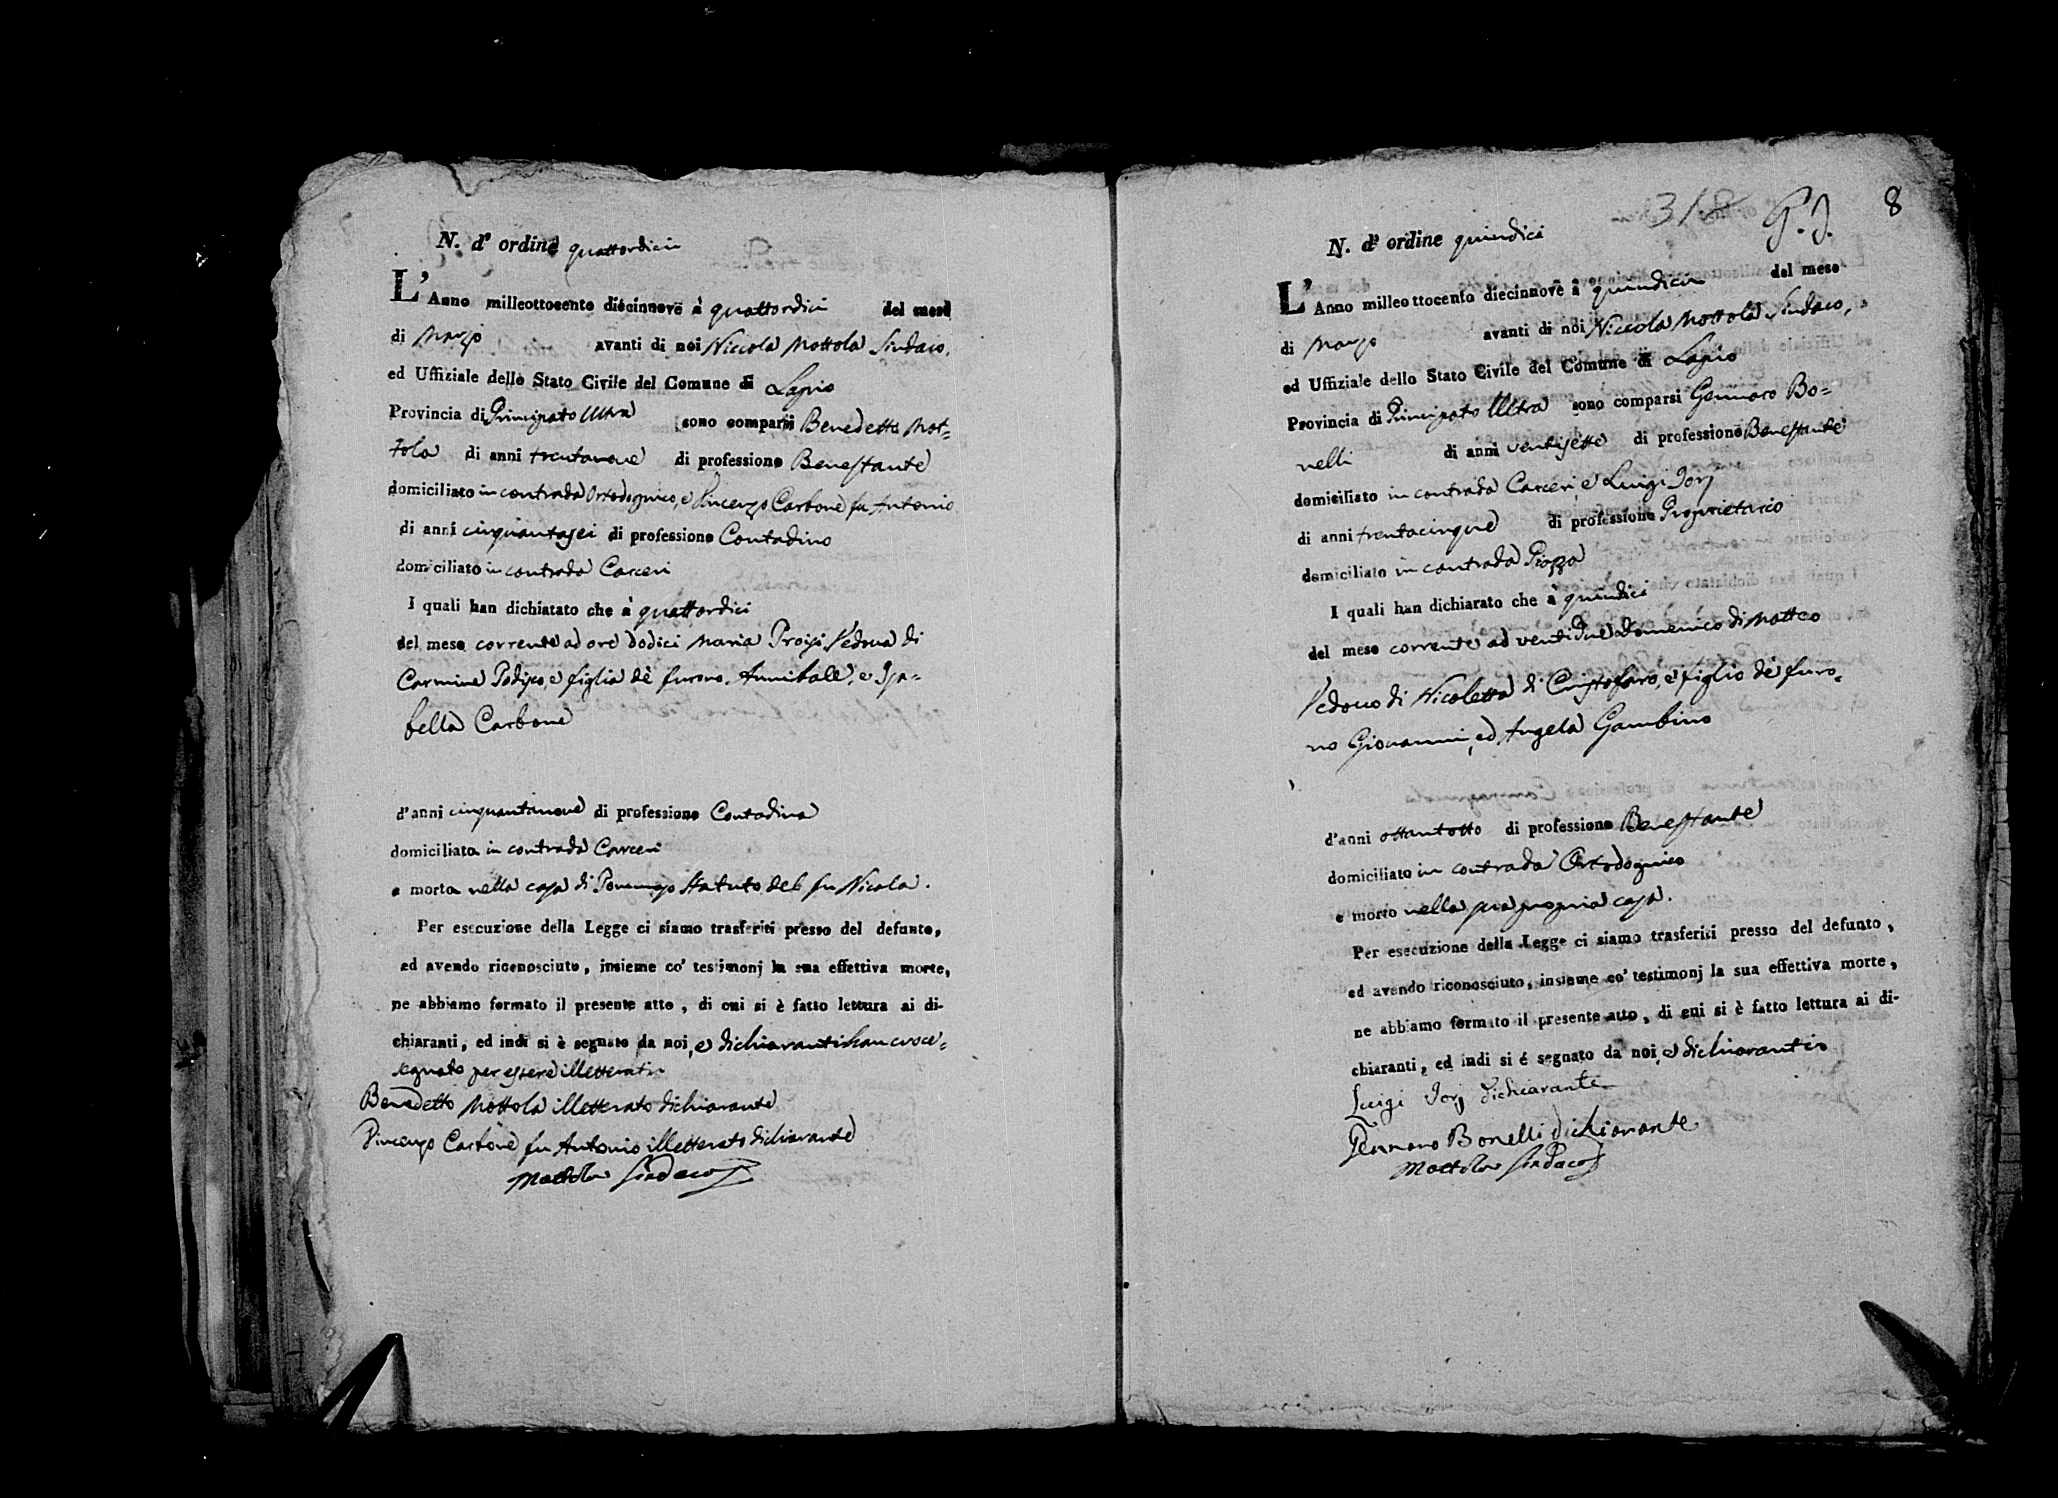 N. d' ordine quattordici
L' Anno milleottocento diecinnove à quattordici del mese
di Marzo avanti di noi Niccola Mottola Sindaco,
ed Uffiziale dello Stato Civile del Comune di Lapio
Provincia di Principato Ultra sono comparsi Benedetto Mot-
tola di anni trentanove di professione Benestante
domiciliato in contrada Ortodognico, e Vincenzo Carbone fu Antonio
di anni cinquantasei di professione Contadino
domiciliato in contrada Carceri
I quali han dichiatato che à quattordici
del mese corrente ad ore dodici Maria Vedova di
Carmine e figlia de' furono Annibale, e Isa-
bella Carbone
d'anni cinquantanove di professione Contadina
domiciliata in contrada Carceri
e morta nella casa di Statuto del fu Nicola.
Per esecuzione della Legge ci siamo trasferiti presso del defunto,
ed avendo riconosciuto, insieme co' testimonj la sua effettiva morte,
ne abbiamo formato il presente atto, di cui si è fatto lettura ai di-
chiaranti, ed indi si è segnato da noi, e dichiaranti han croce-
segnato per essere illetterati
Benedetto Mottola illetterato dichiarante
Vincenzo Carbone fu Antonio illetterato dichiarante
Mottola Sindaco
318 8
N. d' ordine quindici
L' Anno milleottocento diecinnove à quindici del mese
di Marzo avanti di noi Niccola Mottola Sindaco,
ed Uffiziale dello Stato Civile del Comune di Lapio
Provincia di Principato Ultra sono comparsi Gennaro Bo-
nelli di anni ventisette di professione Benestante
domiciliato in contrada Carceri, e Luigi Jorj
di anni trentacinque di professione Proprietario
domiciliato in contrada Piazza
I quali han dichiarato che à quindici
del mese corrente ad ventidue Domenico di Matteo
Vedovo di Nicoletta di Cristofaro, e figlio de' furo-
no Giovanni, ed Angela Gambino
d'anni ottantotto di professione Benestante
domiciliato in contrada Ortodognico
e morto nella sua propria casa.
Per esecuzione della Legge ci siamo trasferiti presso del defunto,
ed avendo riconosciuto, insieme co' testimonj la sua effettiva morte,
ne abbiamo formato il presente atto, di cui si è fatto lettura ai di-
chiaranti, ed indi si é segnato da noi, e dichiaranti
Luigi Jorj dichiarante
Gennaro Bonelli dichiarante
Mottola Sindaco